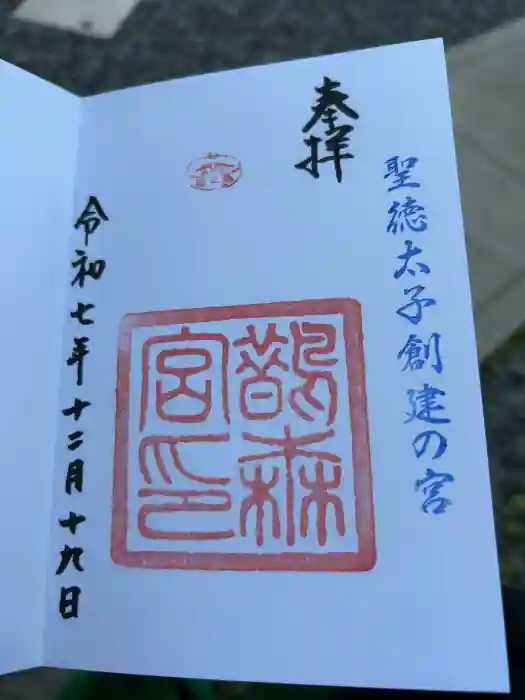 聖徳太子創建の宮
奉拝
鵲森
宮印
令初七年十二月十九日